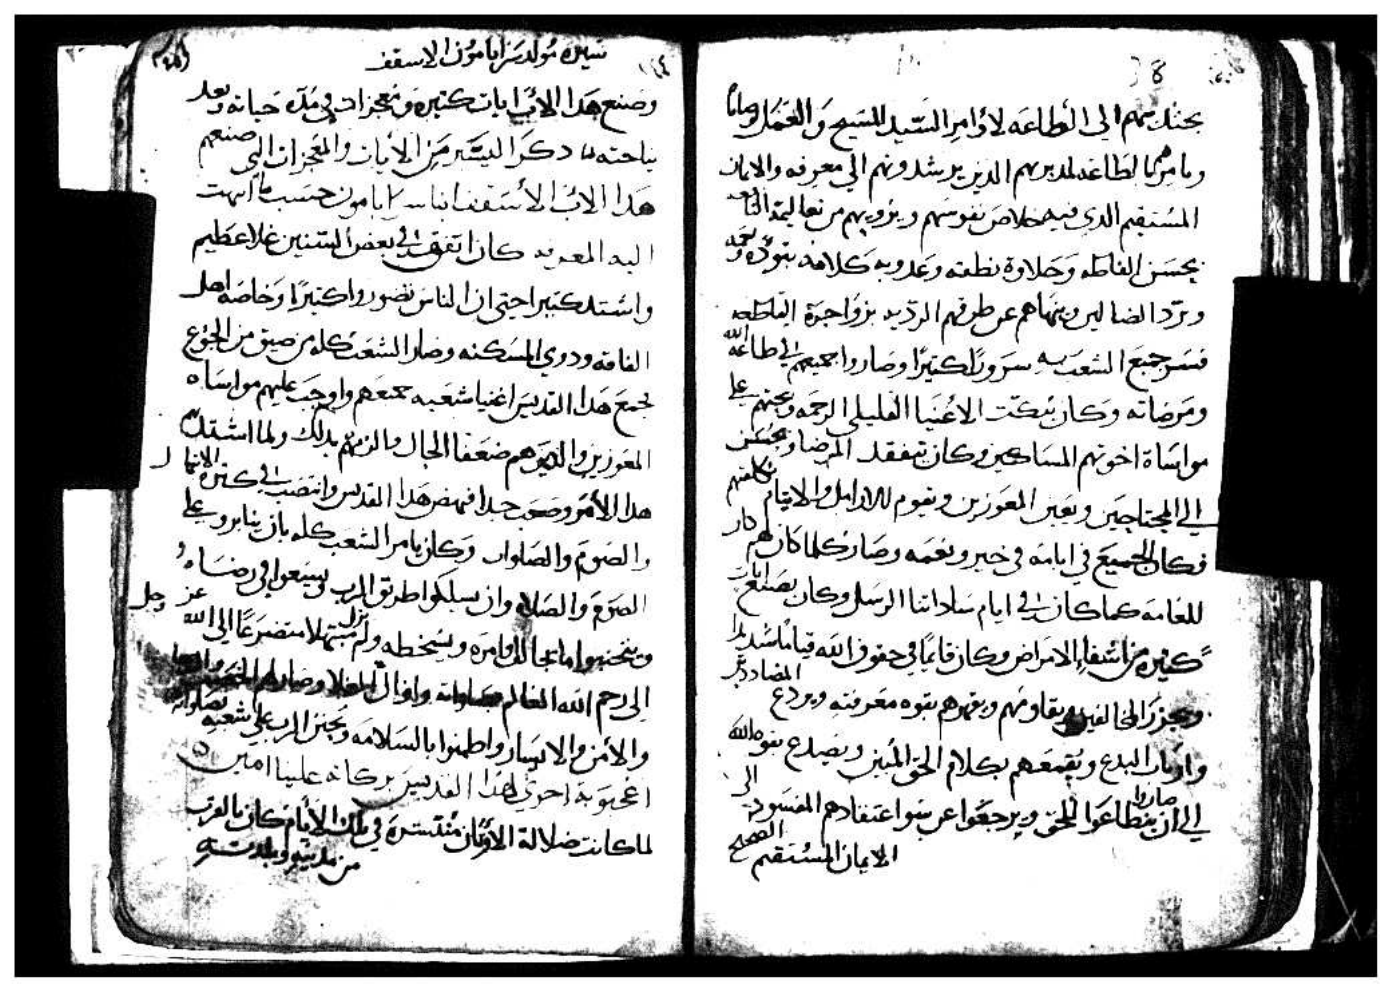 يجتذبهم الى الطاعه لاوامر السيد المسيح والعمل وصايا
ويامرهم بالطاعه لمدبريهم الذين يرشدونهم الى معرفه والايمان
المستقيم الدي فيه خلاص نفوسهم ويرويهم من تعاليمه
بحسن الفاظه وحلاوة نطقه وعدوبه كلامه
ويرد الضالين وينهاهم عن طرقهم الرديه بزواجره
فسر جميع الشعب به سرورًا كتيرًا وصاروا جميعهم الى طاعة الله
ومرضاته وكان يبكت الاغنيا القليلى الرحمه ويحتهم على
مواساة اخوتهم المساكين وكان يتفقد المرضا ويحسن
الى المحتاجين ويعين المعوزين ويقوم للارامل والايتام
فكان الجميع في ايامه في خير ونعمه وصار كلما كان لهم
للعامه كما كان في ايام ساداتنا الرسل وكان يصنع ايات
كتيره من اشفا الامراض وكان قايمًا في حقوق الله قيامًا شديدا
ويجزر المخالفين ويقاومهم ويقهرهم بقوه معرفته ويردع المضاددين
وارباب البدع ويقمعهم بكلام الحق المبين ويصدع بقوه الله
الى ان ينطاعوا للحق ويرجعوا عن سوا اعتقادهم المفسود الى
صاروا
الايمان المستقيم الصحيح
سيره مولد سرابامون الاسقف
وصنع هذا الاب ايات كتيره ومعجزات في مدة حياته وبعد
نياحته دكر اليسير من الايات والمعجزات التى صنعهم
هذا الاب الاسقف انبا سرابامون حسب ما انتهت
اليه المعرفه كان اتفق في بعض السنين غلا عظيم
واشتد كتيرا حتى ان الناس تضوروا كتيرًا وخاصه اهل
الفاقه ودوي المسكنه وصار الشعب كله في ضيق من الجوع
فجمع هذا القديس اغنيا شعبه جمعهم واوجب عليهم مواساه
المعوزين والدين هم ضعفا الحال والزمهم بدلك ولما اشتد
هذا الأمر وصعب جدا فنهض هذا القديس وانتصب الى كتره الابتهال
والصوم والصلوات وكان يامر الشعب كله بان يتابروا على
الصوم والصلاه وان يسلكوا طريق الرب ويسعوا في رضاه
ويتجنبوا ما يخالف اوامره ويسخطه ولم يزل مبتهلا متضرعًا الى الله عز وجل
الى رحم الله العالم بصلواته وازال الغلا وصار لهم الخصب
والامن والايسار واطمنوا بالسلامه وتحنن الرب على شعبه بصلواته
اعجوبة اخرى لهذا القديس بركاته علينا امين
لما كانت ضلالة الاوتان منتشره في تلك الايام كان بالقرب
من مدينة